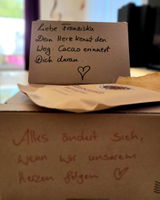 Liebe Franziska
Dein Herz kennt den
Weg. Cacao erinnert
Dich daran.
Alles ändert sich,
wenn wir unserem
Herzen folgen